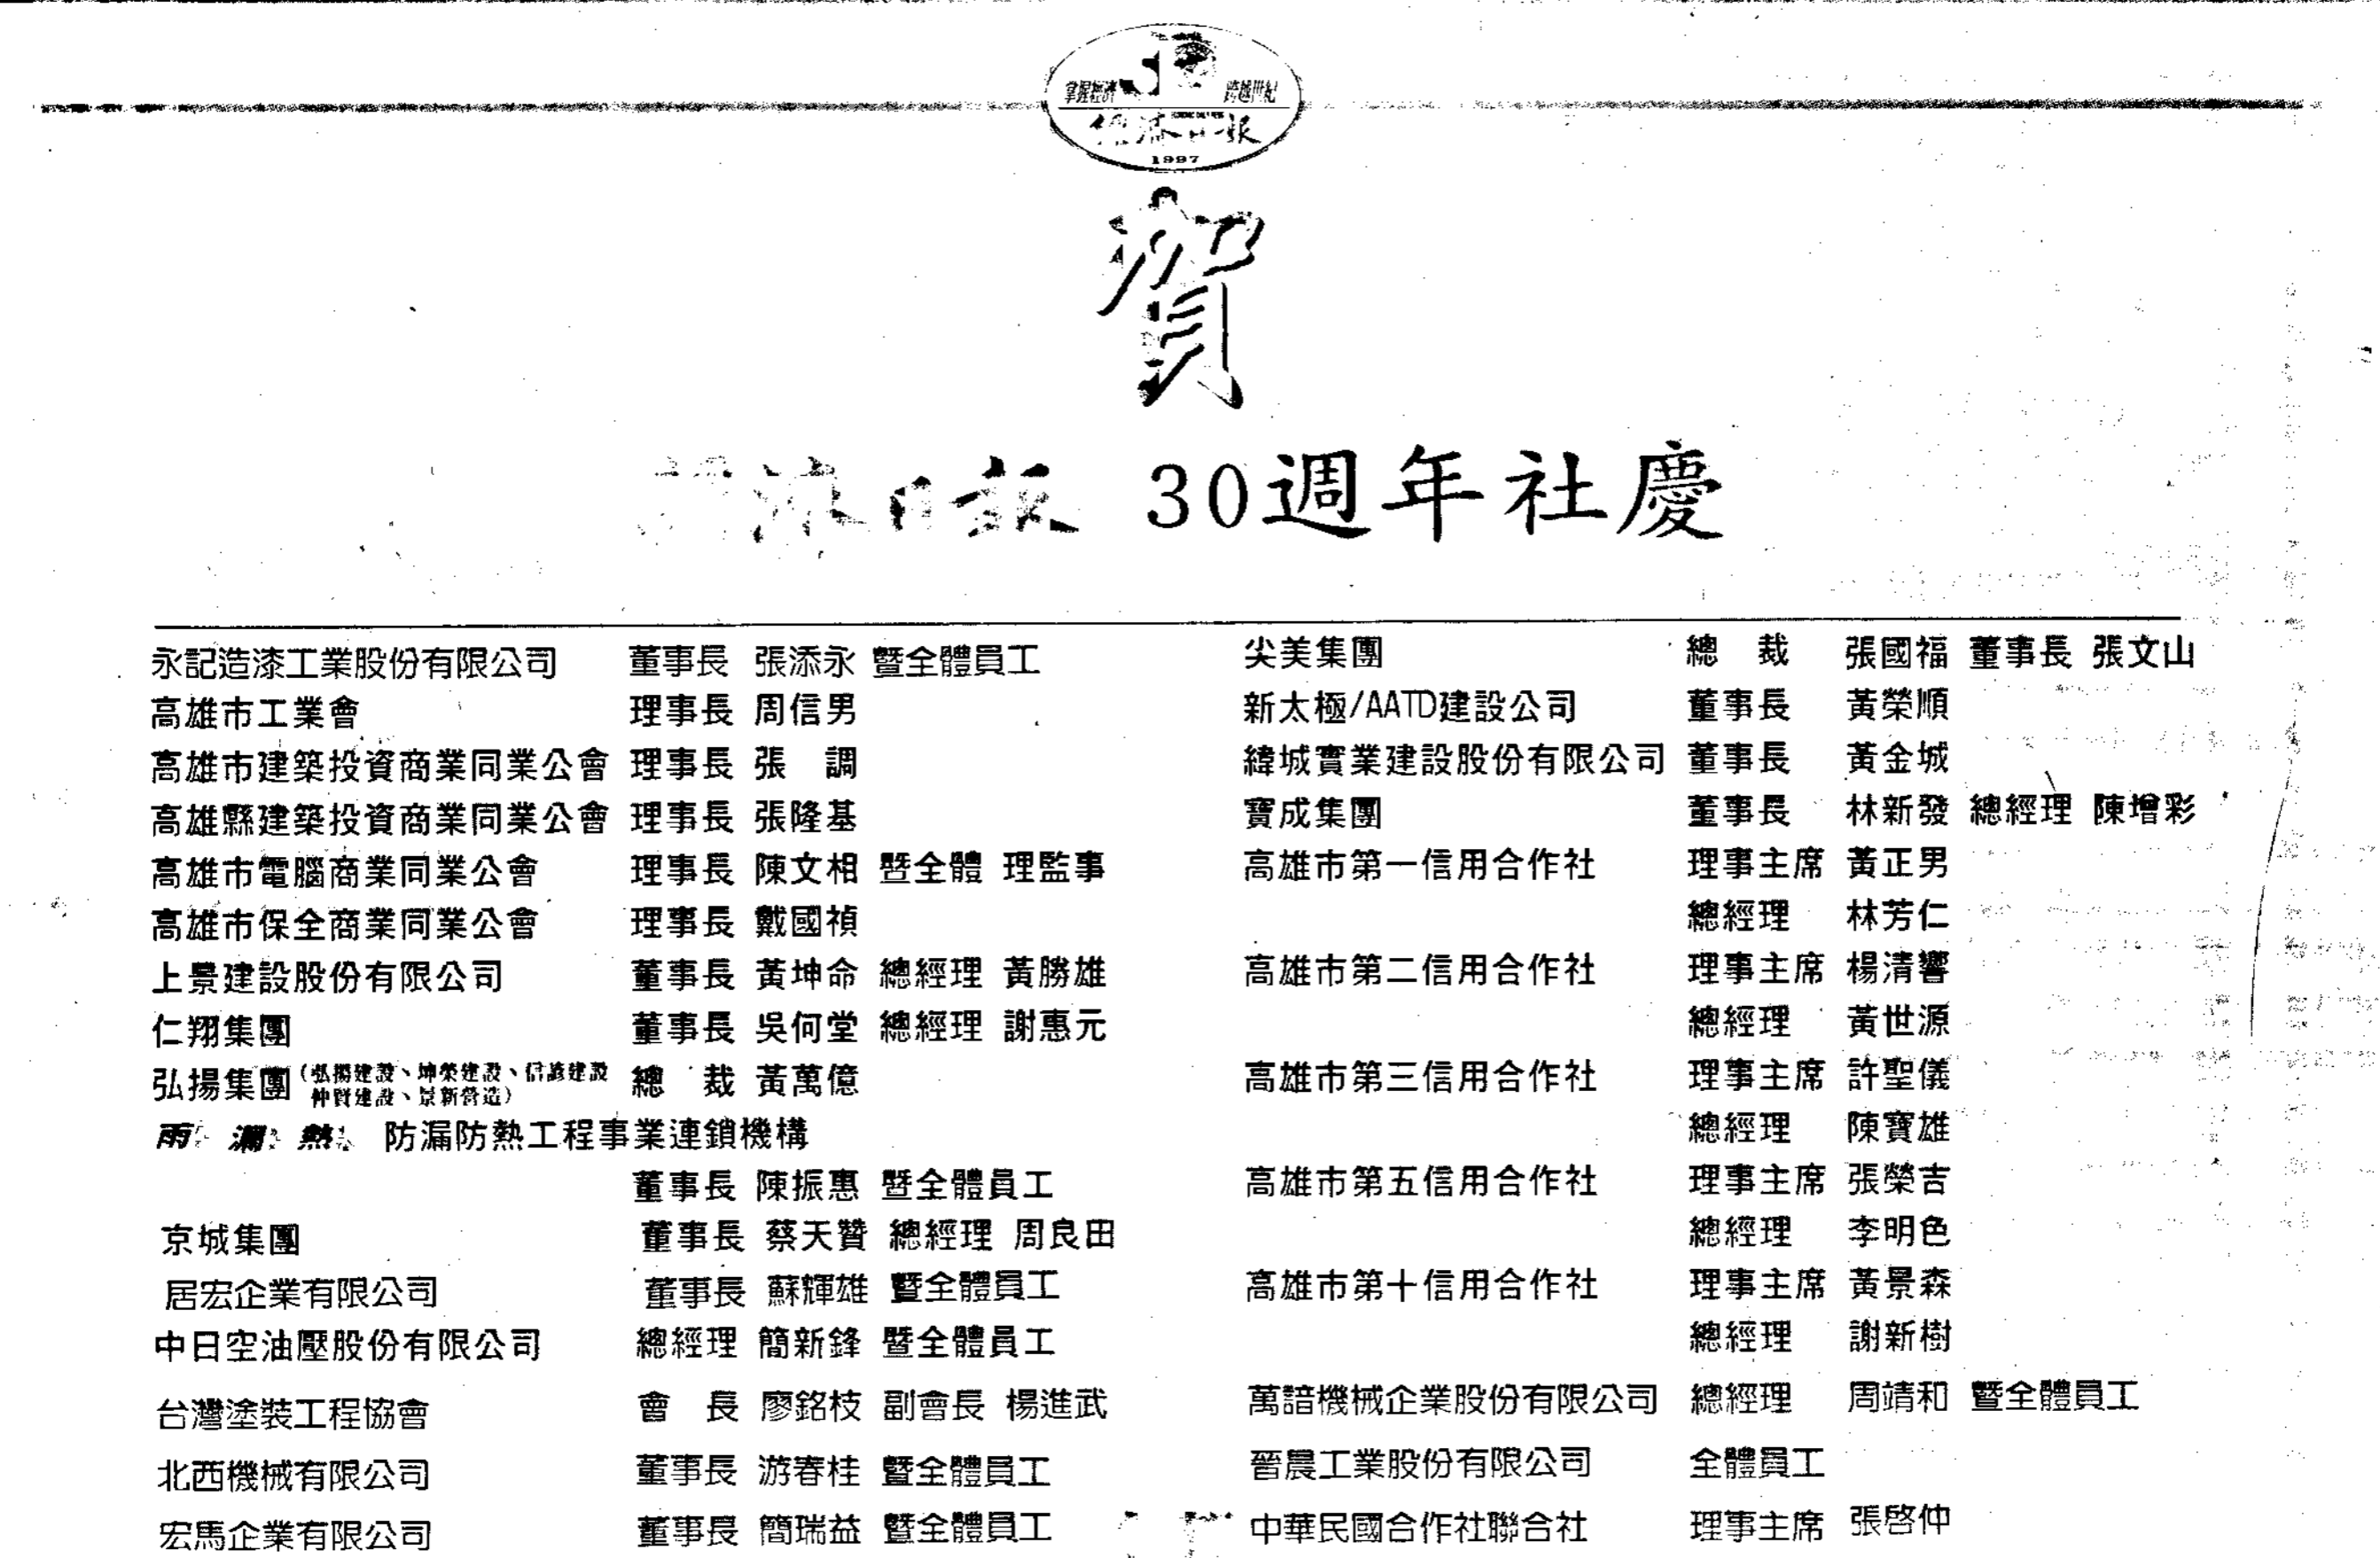 掌握經濟 跨越世紀
經濟日報
1997
賀
經濟日報 30週年社慶
永記造漆工業股份有限公司 董事長 張添永 暨全體員工
高雄市工業會 理事長 周信男
高雄市建築投資商業同業公會 理事長 張 調
高雄縣建築投資商業同業公會 理事長 張隆基
高雄市電腦商業同業公會 理事長 陳文相 暨全體 理監事
高雄市保全商業同業公會 理事長 戴國禎
上景建設股份有限公司 董事長 黃坤命 總經理 黃勝雄
仁翔集團 董事長 吳何堂 總經理 謝惠元
弘揚集團(弘揚建設、坤榮建設、信諺建設
仲賢建設、景新營造) 總 裁 黃萬億
雨 漏 熱 防漏防熱工程事業連鎖機構
董事長 陳振惠 暨全體員工
京城集團 董事長 蔡天贊 總經理 周良田
居宏企業有限公司 董事長 蘇輝雄 暨全體員工
中日空油壓股份有限公司 總經理 簡新鋒 暨全體員工
台灣塗裝工程協會 會 長 廖銘枝 副會長 楊進武
北西機械有限公司 董事長 游春桂 暨全體員工
宏馬企業有限公司 董事長 簡瑞益 暨全體員工
尖美集團 總 裁 張國福 董事長 張文山
新太極/AATD建設公司 董事長 黃榮順
緯城實業建設股份有限公司 董事長 黃金城
寶成集團 董事長 林新發 總經理 陳增彩
高雄市第一信用合作社 理事主席 黃正男
總經理 林芳仁
高雄市第二信用合作社 理事主席 楊清響
總經理 黃世源
高雄市第三信用合作社 理事主席 許聖儀
總經理 陳寶雄
高雄市第五信用合作社 理事主席 張榮吉
總經理 李明色
高雄市第十信用合作社 理事主席 黃景森
總經理 謝新樹
萬諳機械企業股份有限公司 總經理 周靖和 暨全體員工
晉晨工業股份有限公司 全體員工
中華民國合作社聯合社 理事主席 張啓仲